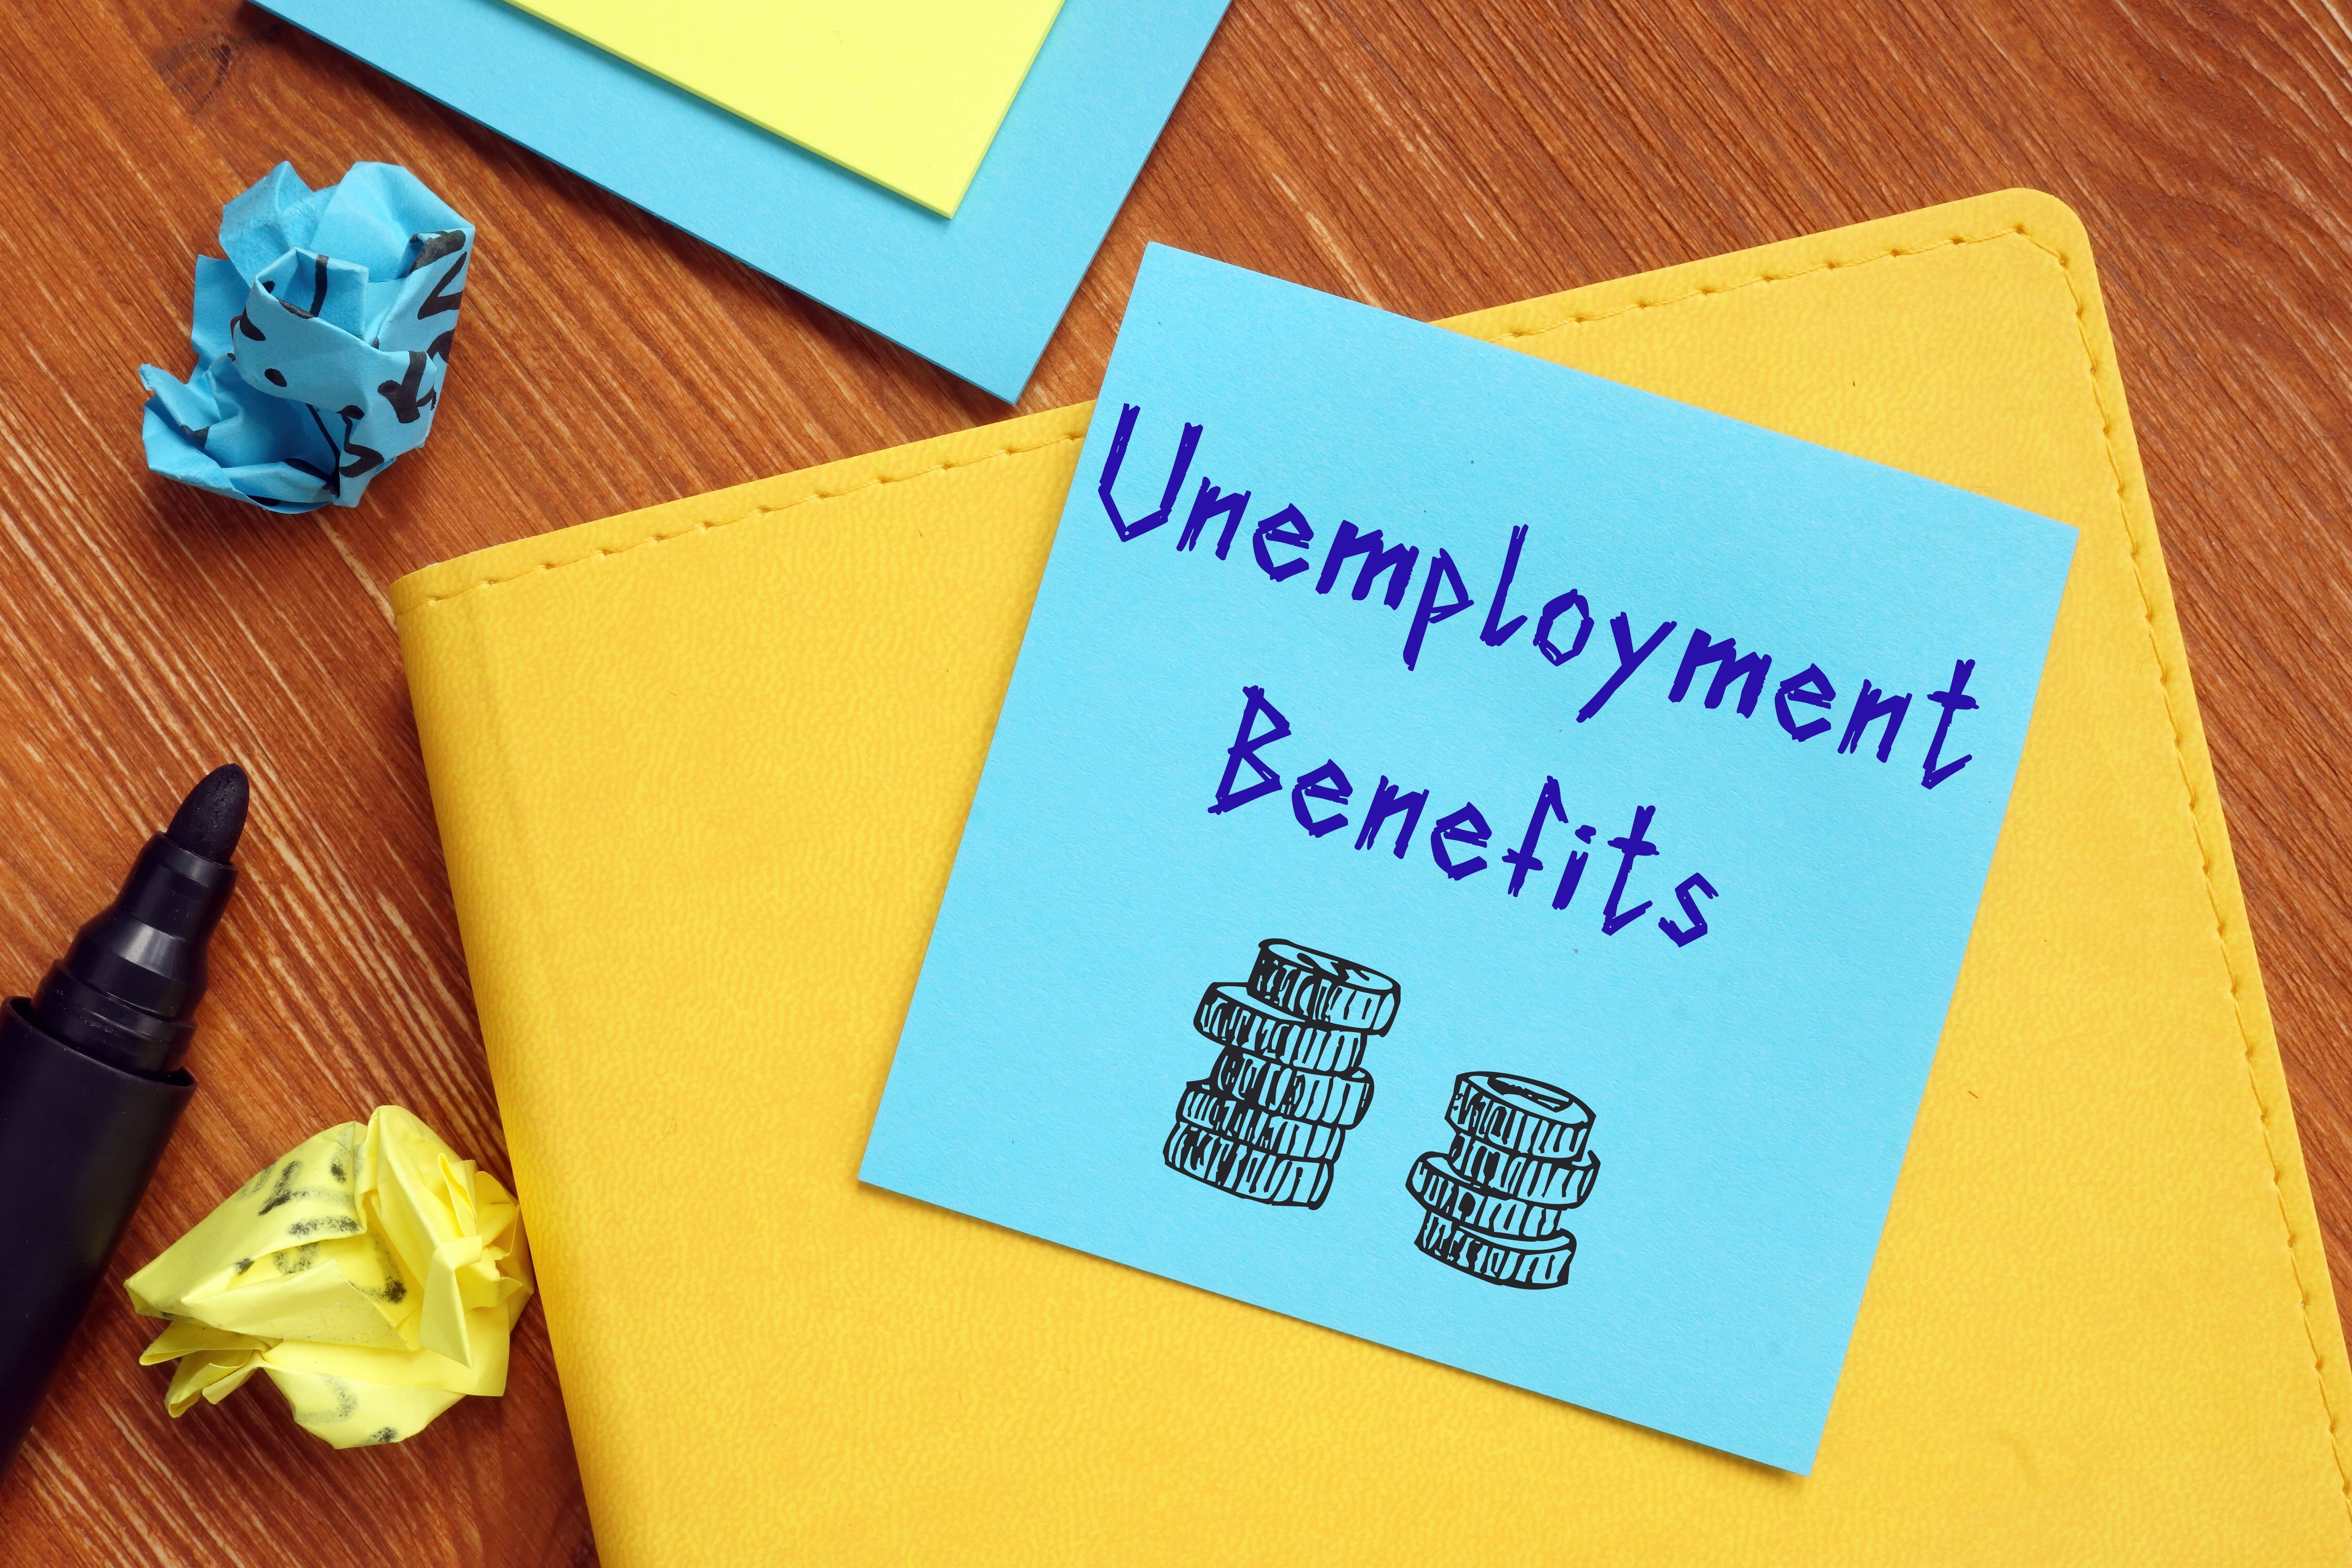 Unemployment
Benefits